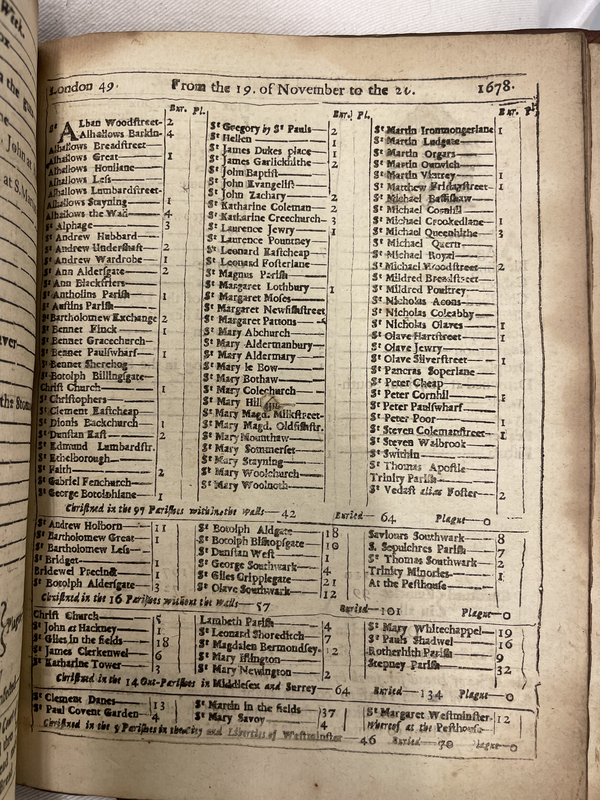 London 49. From the 19. of November to the 26. 1678.
Bur. Pl.
St Alban Woodstreet- 2
Alhallows Barkin- 4
Alhallows Breadstreet
Alhallows Great 1
Alhallows Honilane
Alhallows Less
Alhallows Lumbardstreet-
Alhallows Stayning 1
Alhallows the Wall 4
St Alphage 3
St Andrew Hubbard
St Andrew Undershaft 2
St Andrew Wardrobe 1
St Ann Aldersgate 2
St Ann Blackfriers
St Antholins Parish 1
St Austins Parish
St Bartholomew Exchange 2
St Bennet Finck 1
St Bennet Gracechurch
St Bennet Paulswharf 1
St Bennet Sherehog
St Botolph Billingsgate
Christ Church 1
St Christophers
St Clement Eastcheap
St Dionis Backchurch 1
St Dunstan East 2
St Edmund Lumbardstr.
St Ethelborough
St Faith 2
St Gabriel Fenchurch
St George Botolphlane 1
Bur. Pl.
St Gregory by St Pauls 2
St Hellen 1
St James Dukes place 1
St James Garlickhithe 2
St John Baptist
St John Evangelist
St John Zachary 2
St Katharine Coleman 2
St Katharine Creechurch 3
St Laurence Jewry 1
St Laurence Pountney
St Leonard Eastcheap
St Leonard Fosterlane
St Magnus Parish
St Margaret Lothbury 1
St Margaret Moses
St Margaret Newfishstreet
St Margaret Pattons
St Mary Abchurch
St Mary Aldermanbury
St Mary Aldermary
St Mary le Bow
St Mary Bothaw
St Mary Colechurch
St Mary Hill
St Mary Magd. Milkstreet-
St Mary Magd. Oldfishstr.
St Mary Mounthaw
St Mary Sommerset
St Mary Stayning
St Mary Woolchurch
St Mary Woolnoth
Bur. Pl.
St Martin Ironmongerlane 1
St Martin Ludgate
St Martin Orgars
St Martin Outwich
St Martin Vintrey 1
St Matthew Fridaystreet 1
St Michael Bassishaw
St Michael Cornhill
St Michael Crookedlane 1
St Michael Queenhithe 3
St Michael Quern
St Michael Royal
St Michael Woodstreet 2
St Mildred Breadstreet
St Mildred Poultrey
St Nicholas Acons
St Nicholas Coleabby
St Nicholas Olaves 1
St Olave Hartstreet 1
St Olave Jewry
St Olave Silverstreet 1
St Pancras Soperlane
St Peter Cheap
St Peter Cornhil
St Peter Paulswharf
St Peter Poor 1
St Steven Colemanstreet- 1
St Steven Walbrook
St Swithin
St Thomas Apostle
Trinity Parish
St Vedast alias Foster 2
Christned in the 97 Parishes within the Walls 42 Buried 64 Plague 0
St Andrew Holborn 11
St Bartholomew Great 1
St Bartholomew Less
St Bridget 1
Bridewel Precinct 1
St Botolph Aldersgate 3
St Botolph Aldgate 18
St Botolph Bishopsgate 10
St Dunstan West 1
St George Southwark 4
St Giles Cripplegate 21
St Olave Southwark 12
Saviours Southwark 8
S. Sepulchres Parish 7
St Thomas Southwark 2
Trinity Minories 1
At the Pesthouse
Christned in the 16 Parishes without the Walls 57 Buried 101 Plague 0
Christ Church 5
St John at Hackney 1
St Giles in the fields 18
St James Clerkenwel 6
St Katharine Tower 3
Lambeth Parish 4
St Leonard Shoreditch 7
St Magdalen Bermondsey- 12
St Mary Islington
St Mary Newington 2
St Mary Whitechappel 19
St Pauls Shadwel 16
Rotherhith Parish 9
Stepney Parish 32
Christned in the 14 Out-Parishes in Middlesex and Surrey 64 Buried 134 Plague 0
St Clement Danes 13
St Paul Covent Garden 4
St Martin in the fields 37
St Mary Savoy 4
St Margaret Westminster 12
Whereof at the Pesthouse
Christned in the 5 Parishes in the City and Liberties of Westminster 46 Buried 70 Plague 0